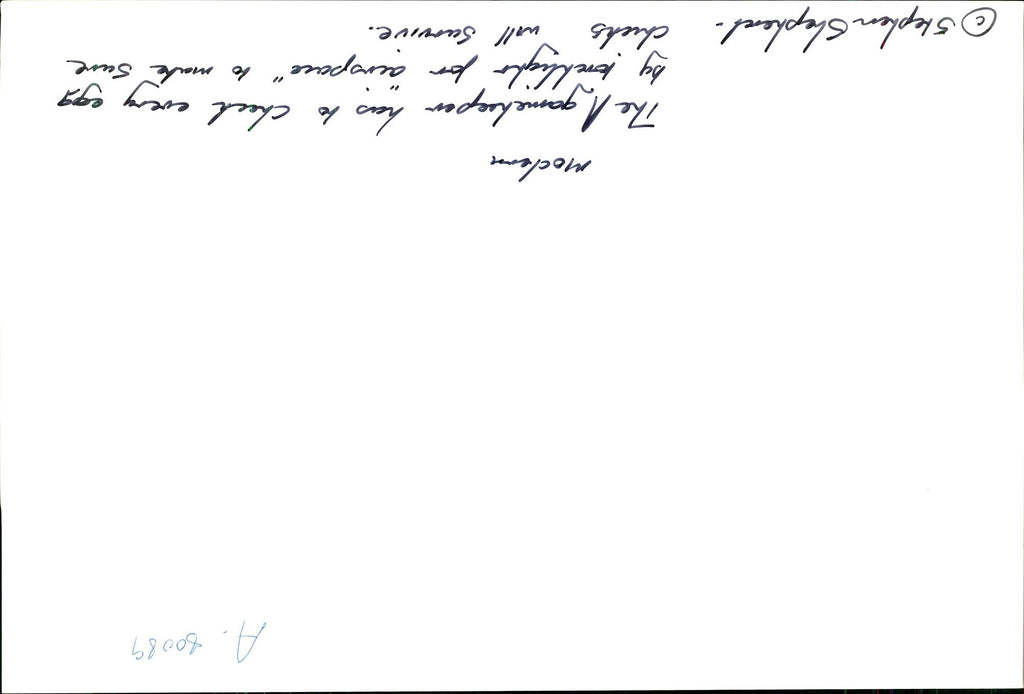 A. 80089
modern
The ⋏ gamekeeper has to check every egg
by torchlight for "airspace" to make sure
chicks will survive.
© Stephen Shepherd.